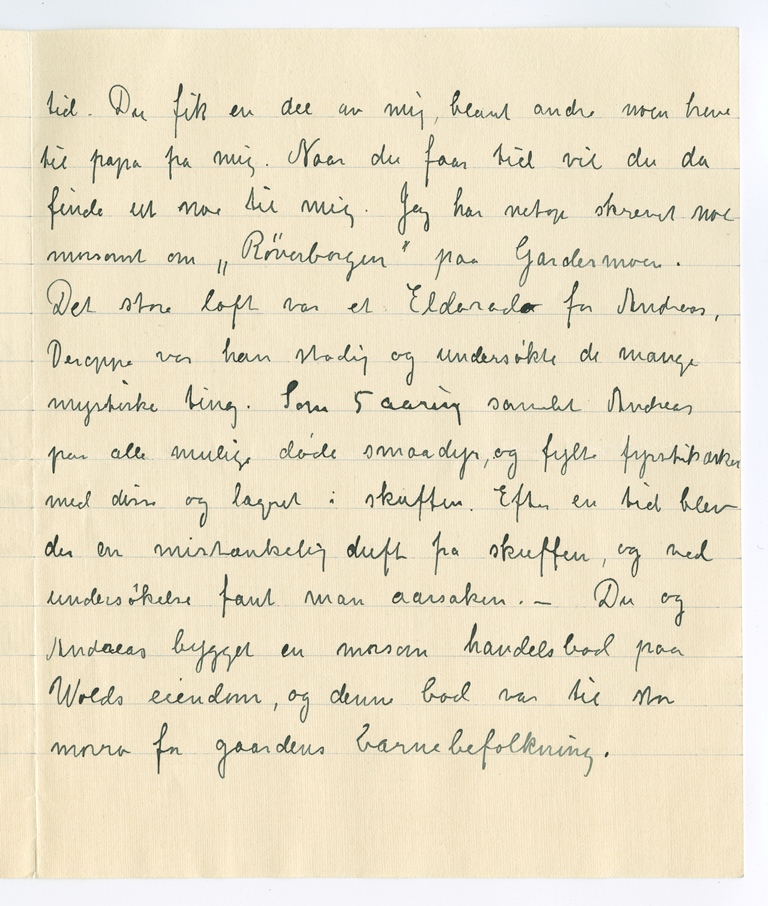 tid. Du fik en del av mig, blant andre noen breve
til papa fra mig. Naar du faar tid vil du da
finde ut noe til mig. Jeg har netop skrevet noe
morsomt om „Röverborgen" paa Gardermoen.
Det store loft var et Eldorado for Andreas,
Deroppe var han stadig og undersøkte de mange
mystiske ting. Som 5 aaring samlet Andreas
paa alle mulige døde smaadyr, og fylte fyrstikæsker
med disse og lagret i skuffen. Efter en tid blev
der en mistænkelig duft fra skuffen, og ved
undersøkelse fant man aarsaken. — Du og
Andreas bygget en morsom handelsbod paa
Wolds eiendom, og denne bod var til stor
morro for gaardens barnebefolkning.